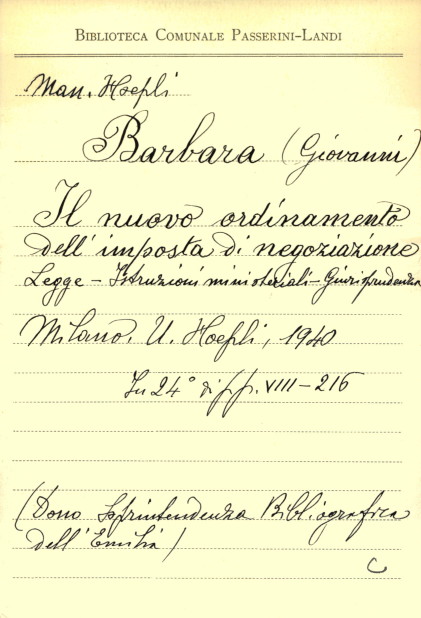 BIBLIOTECA COMUNALE PASSERINI-LANDI
Man. Hoepli
Barbara (Giovanni)
Il nuovo ordinamento
dell'imposta di negoziazione
Legge - Istruzioni ministeriali - Giurisprudenza
Milano. U. Hoepli, 1940
In 24° di pp. VIII-216
(Dono Soprintendenza Bibliografica
dell'Emilia)
C